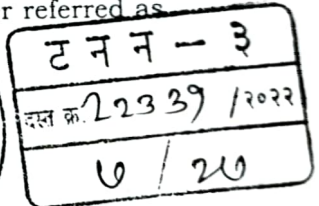 r referred as
ट न न - ३
दस्त क्र. 22339 /२०२२
७ / २७